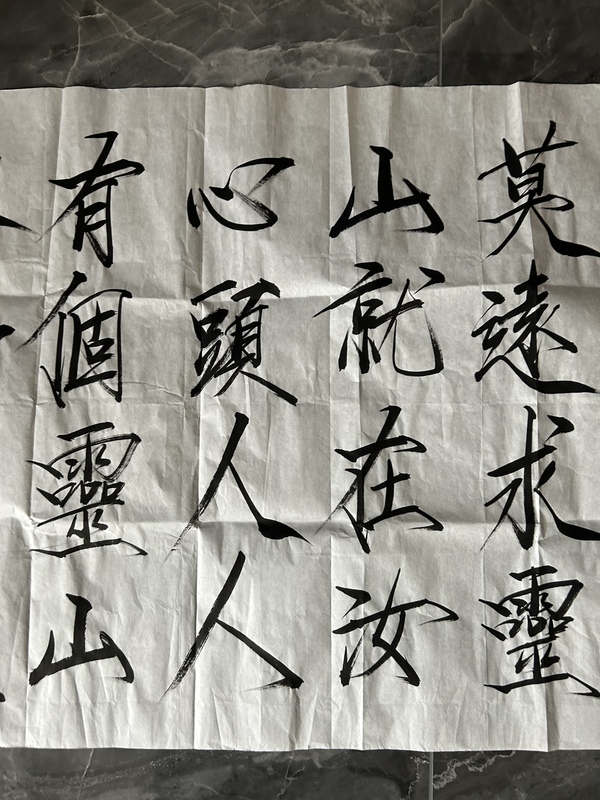 莫遠求靈
山就在汝
心頭人人
有個靈山